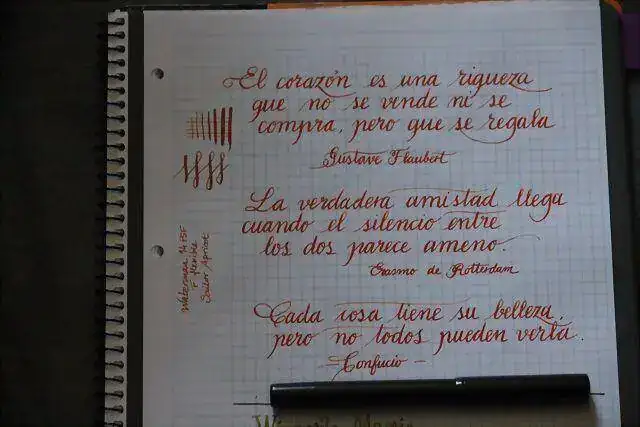 El corazón es una riqueza
que no se vende ni se
compra, pero que se regala
Gustave Flaubert
La verdadera amistad llega
cuando el silencio entre
los dos parece ameno.
Erasmo de Rotterdam
Cada cosa tiene su belleza,
pero no todos pueden verla.
Confucio
Waterman
F flexible
Sailor Apricot